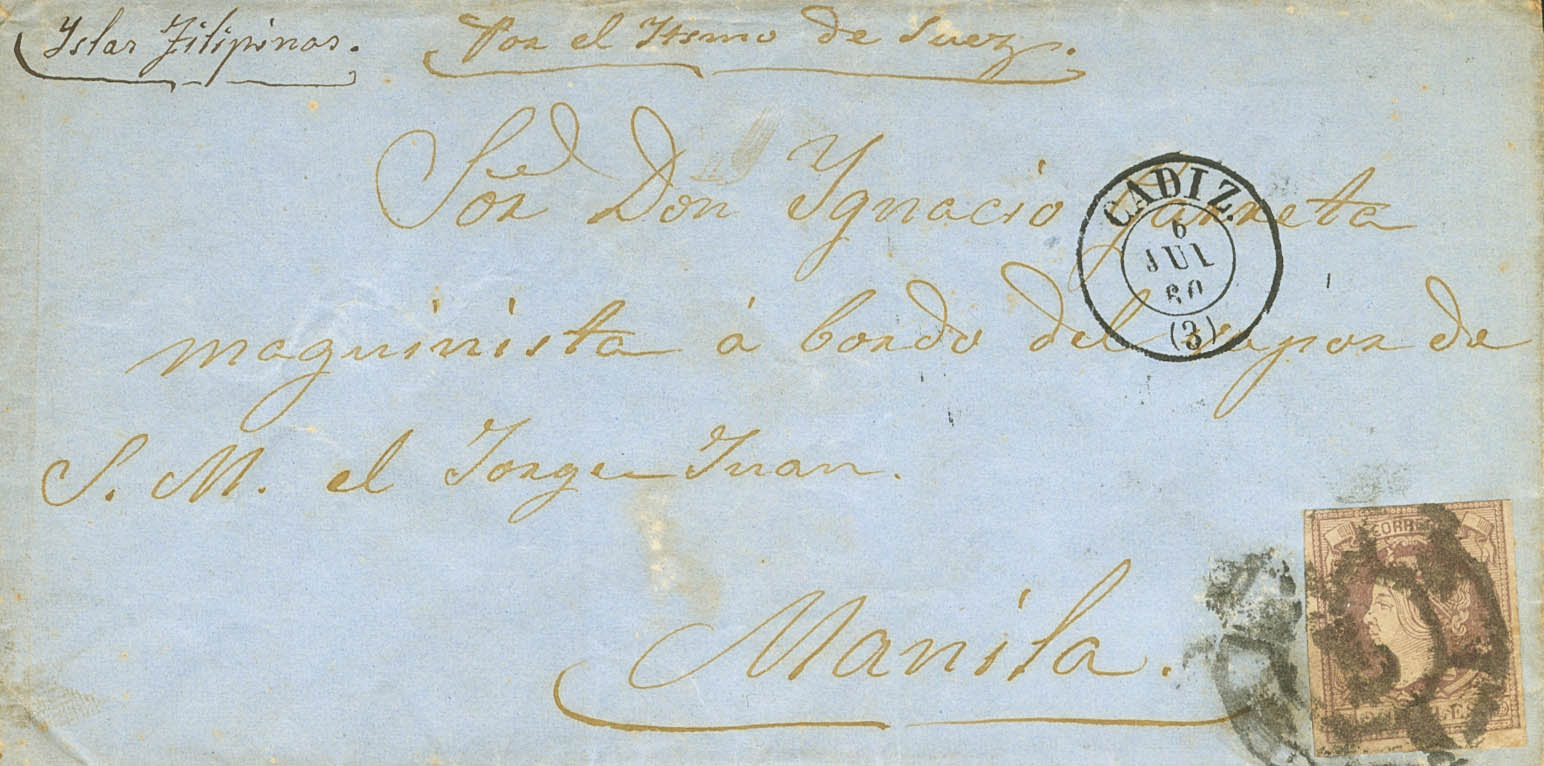 Yslas Filipinas. Por el Ytsmo de Suez.
Sor Don Ygnacio Garreta
maquinista á bordo del vapor de
S. M. el Jorge Juan.
Manila.
CADIZ.
6
JUL
60
(3)
CORREOS